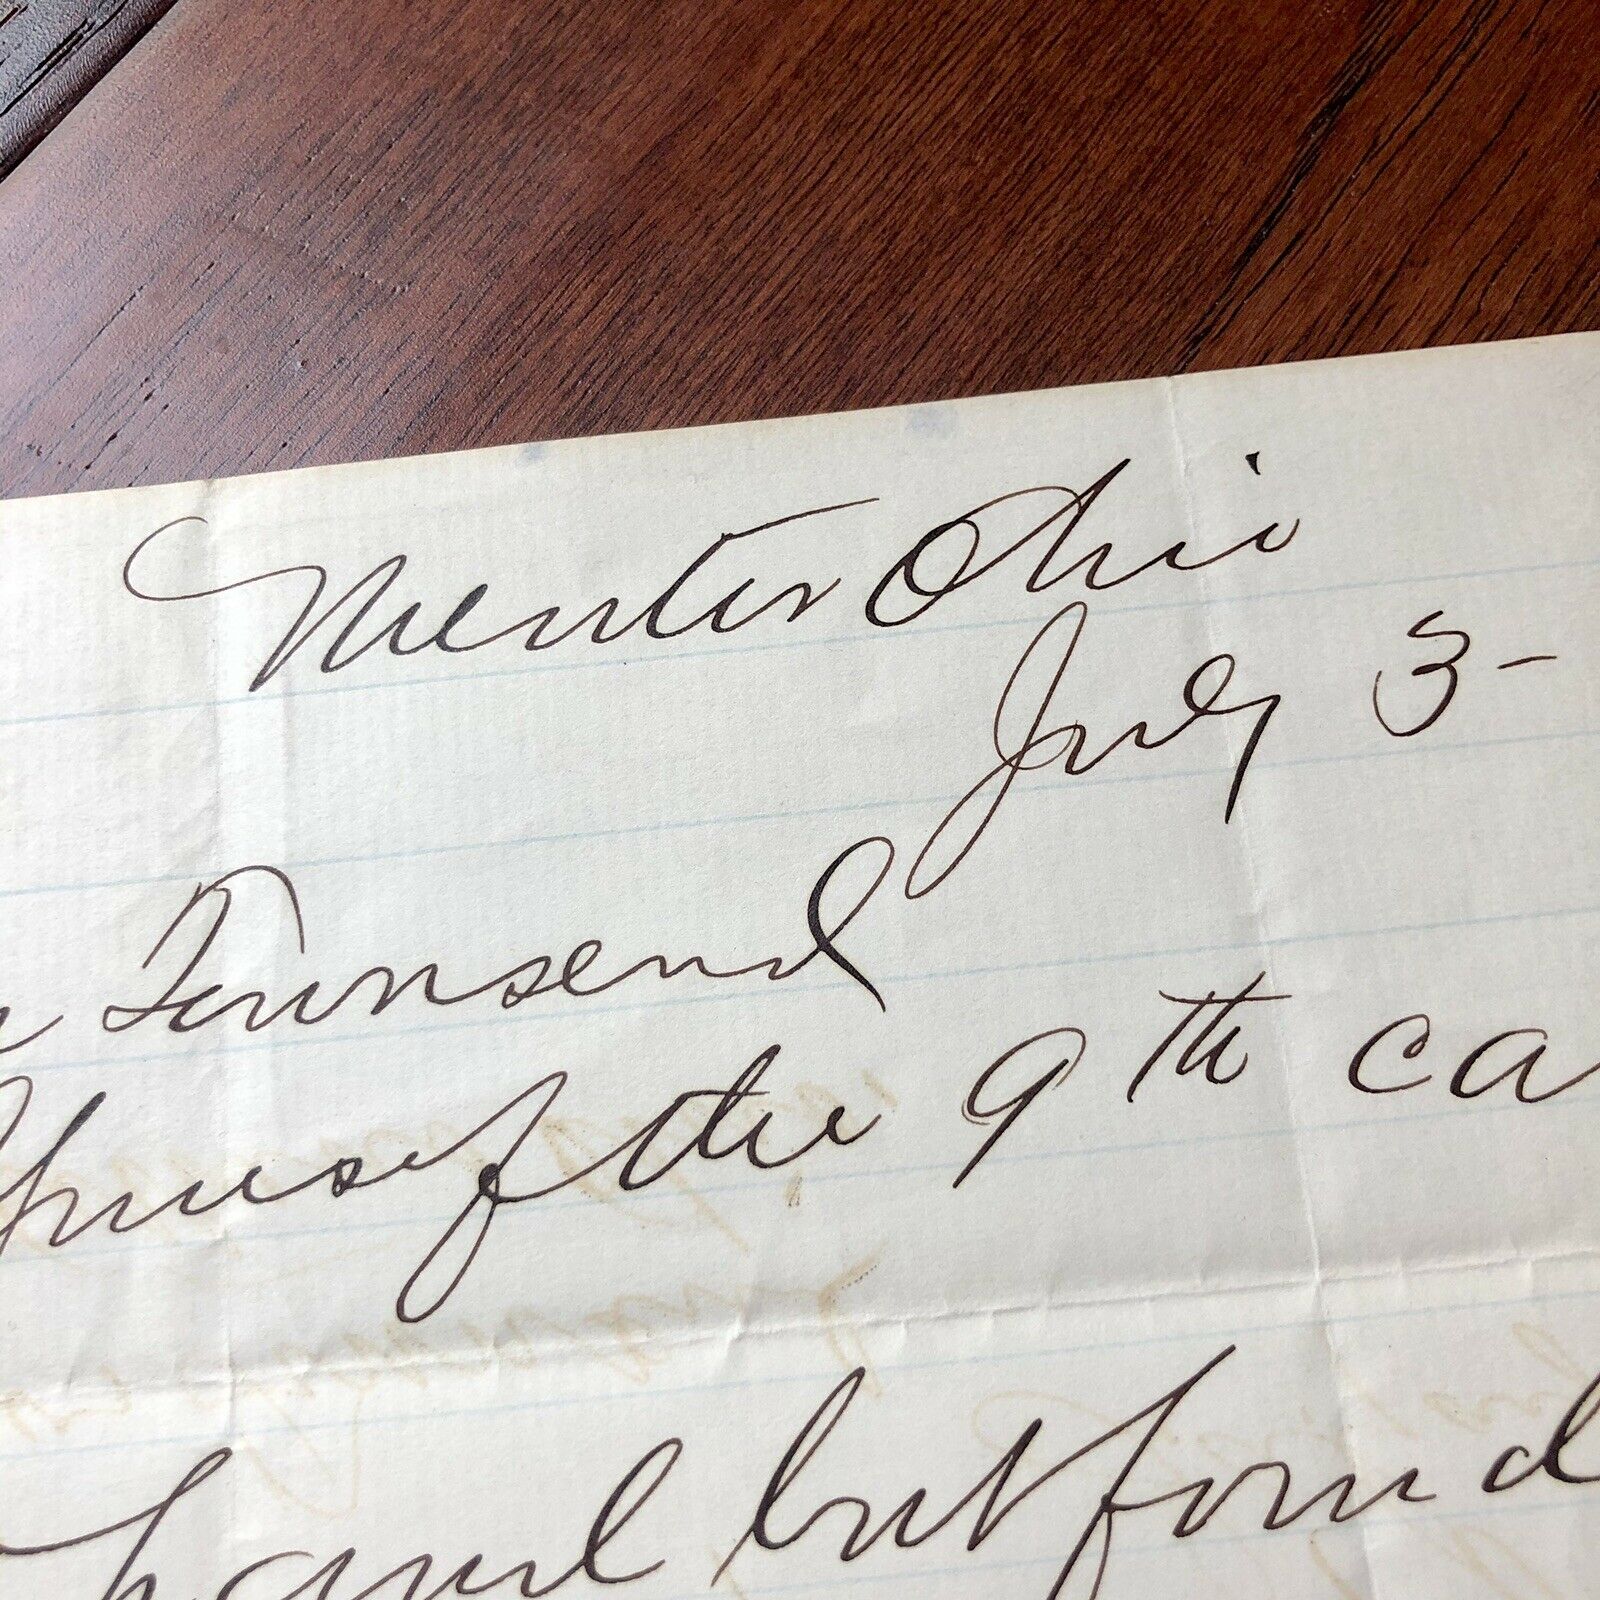 Mentor Ohio
July 3-
Townsend
yours of the 9th ca
hand but found